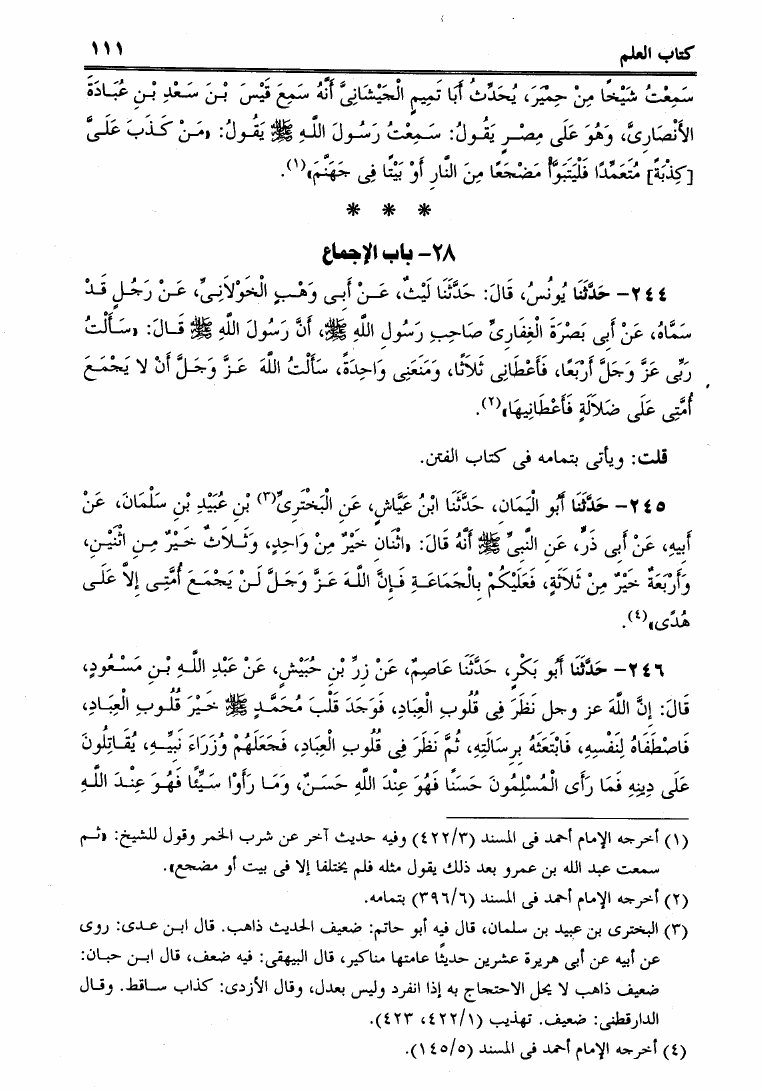 كتاب العلم ١١١
سَمِعْتُ شَيْخًا مِنْ حِمْيَرَ، يُحَدِّثُ أَبَا تَمِيمٍ الْجَيْشَانِيَّ أَنَّهُ سَمِعَ قَيْسَ بْنَ سَعْدِ بْنِ عُبَادَةَ
الأَنْصَارِيَّ، وَهُوَ عَلَى مِصْرَ يَقُولُ: سَمِعْتُ رَسُولَ اللَّهِ ﷺ يَقُولُ: «مَنْ كَذَبَ عَلَىَّ
[كِذْبَةً] مُتَعَمِّدًا فَلْيَتَبَوَّأْ مَضْجَعًا مِنَ النَّارِ أَوْ بَيْتًا فِى جَهَنَّمَ»(١).
* * *
٢٨- باب الإجماع
٢٤٤- حَدَّثَنَا يُونُسُ، قَالَ: حَدَّثَنَا لَيْثٌ، عَنْ أَبِى وَهْبٍ الْخَوْلاَنِىِّ، عَنْ رَجُلٍ قَدْ
سَمَّاهُ، عَنْ أَبِى بَصْرَةَ الْغِفَارِىِّ صَاحِبِ رَسُولِ اللَّهِ ﷺ، أَنَّ رَسُولَ اللَّهِ ﷺ قَالَ: «سَأَلْتُ
رَبِّى عَزَّ وَجَلَّ أَرْبَعًا، فَأَعْطَانِى ثَلاَثًا، وَمَنَعَنِى وَاحِدَةً، سَأَلْتُ اللَّهَ عَزَّ وَجَلَّ أَنْ لاَ يَجْمَعَ
أُمَّتِى عَلَى ضَلاَلَةٍ فَأَعْطَانِيهَا»(٢).
قلت: ويأتى بتمامه فى كتاب الفتن.
٢٤٥- حَدَّثَنَا أَبُو الْيَمَانِ، حَدَّثَنَا ابْنُ عَيَّاشٍ، عَنِ الْبَخْتَرِىِّ(٣) بْنِ عُبَيْدِ بْنِ سَلْمَانَ، عَنْ
أَبِيهِ، عَنْ أَبِى ذَرٍّ، عَنِ النَّبِىِّ ﷺ أَنَّهُ قَالَ: «اثْنَانِ خَيْرٌ مِنْ وَاحِدٍ، وَثَلاَثٌ خَيْرٌ مِنِ اثْنَيْنِ،
وَأَرْبَعَةٌ خَيْرٌ مِنْ ثَلاَثَةٍ، فَعَلَيْكُمْ بِالْجَمَاعَةِ فَإِنَّ اللَّهَ عَزَّ وَجَلَّ لَنْ يَجْمَعَ أُمَّتِى إِلاَّ عَلَى
هُدًى»(٤).
٢٤٦- حَدَّثَنَا أَبُو بَكْرٍ، حَدَّثَنَا عَاصِمٌ، عَنْ زِرِّ بْنِ حُبَيْشٍ، عَنْ عَبْدِ اللَّهِ بْنِ مَسْعُودٍ،
قَالَ: إِنَّ اللَّهَ عز وجل نَظَرَ فِى قُلُوبِ الْعِبَادِ، فَوَجَدَ قَلْبَ مُحَمَّدٍ ﷺ خَيْرَ قُلُوبِ الْعِبَادِ،
فَاصْطَفَاهُ لِنَفْسِهِ، فَابْتَعَثَهُ بِرِسَالَتِهِ، ثُمَّ نَظَرَ فِى قُلُوبِ الْعِبَادِ، فَجَعَلَهُمْ وُزَرَاءَ نَبِيِّهِ، يُقَاتِلُونَ
عَلَى دِينِهِ فَمَا رَأَى الْمُسْلِمُونَ حَسَنًا فَهُوَ عِنْدَ اللَّهِ حَسَنٌ، وَمَا رَأَوْا سَيِّئًا فَهُوَ عِنْدَ اللَّهِ
(١) أخرجه الإمام أحمد فى المسند (٤٢٢/٣) وفيه حديث آخر عن شرب الخمر وقول للشيخ: «ثم
سمعت عبد الله بن عمرو بعد ذلك يقول مثله فلم يختلفا إلا فى بيت أو مضجع».
(٢) أخرجه الإمام أحمد فى المسند (٣٩٦/٦) بتمامه.
(٣) البخترى بن عبيد بن سلمان، قال فيه أبو حاتم: ضعيف الحديث ذاهب. قال ابن عدى: روى
عن أبيه عن أبى هريرة عشرين حديثًا عامتها مناكير، قال البيهقى: فيه ضعف، قال ابن حبان:
ضعيف ذاهب لا يحل الاحتجاج به إذا انفرد وليس بعدل، وقال الأزدى: كذاب ساقط. وقال
الدارقطنى: ضعيف. تهذيب (٤٢٢/١، ٤٢٣).
(٤) أخرجه الإمام أحمد فى المسند (١٤٥/٥).